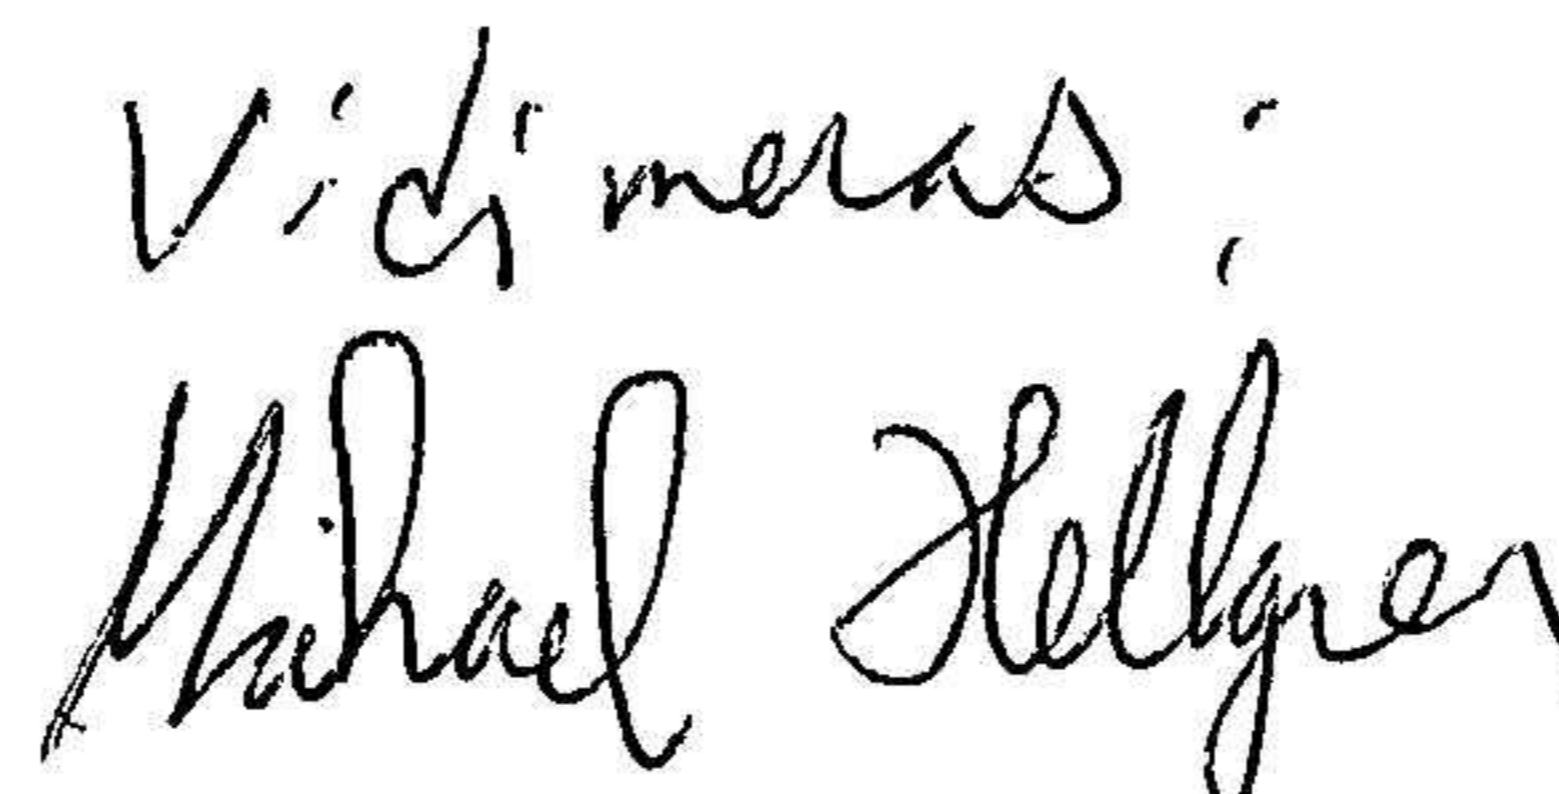 Vidimeras:
Michael Hellgren